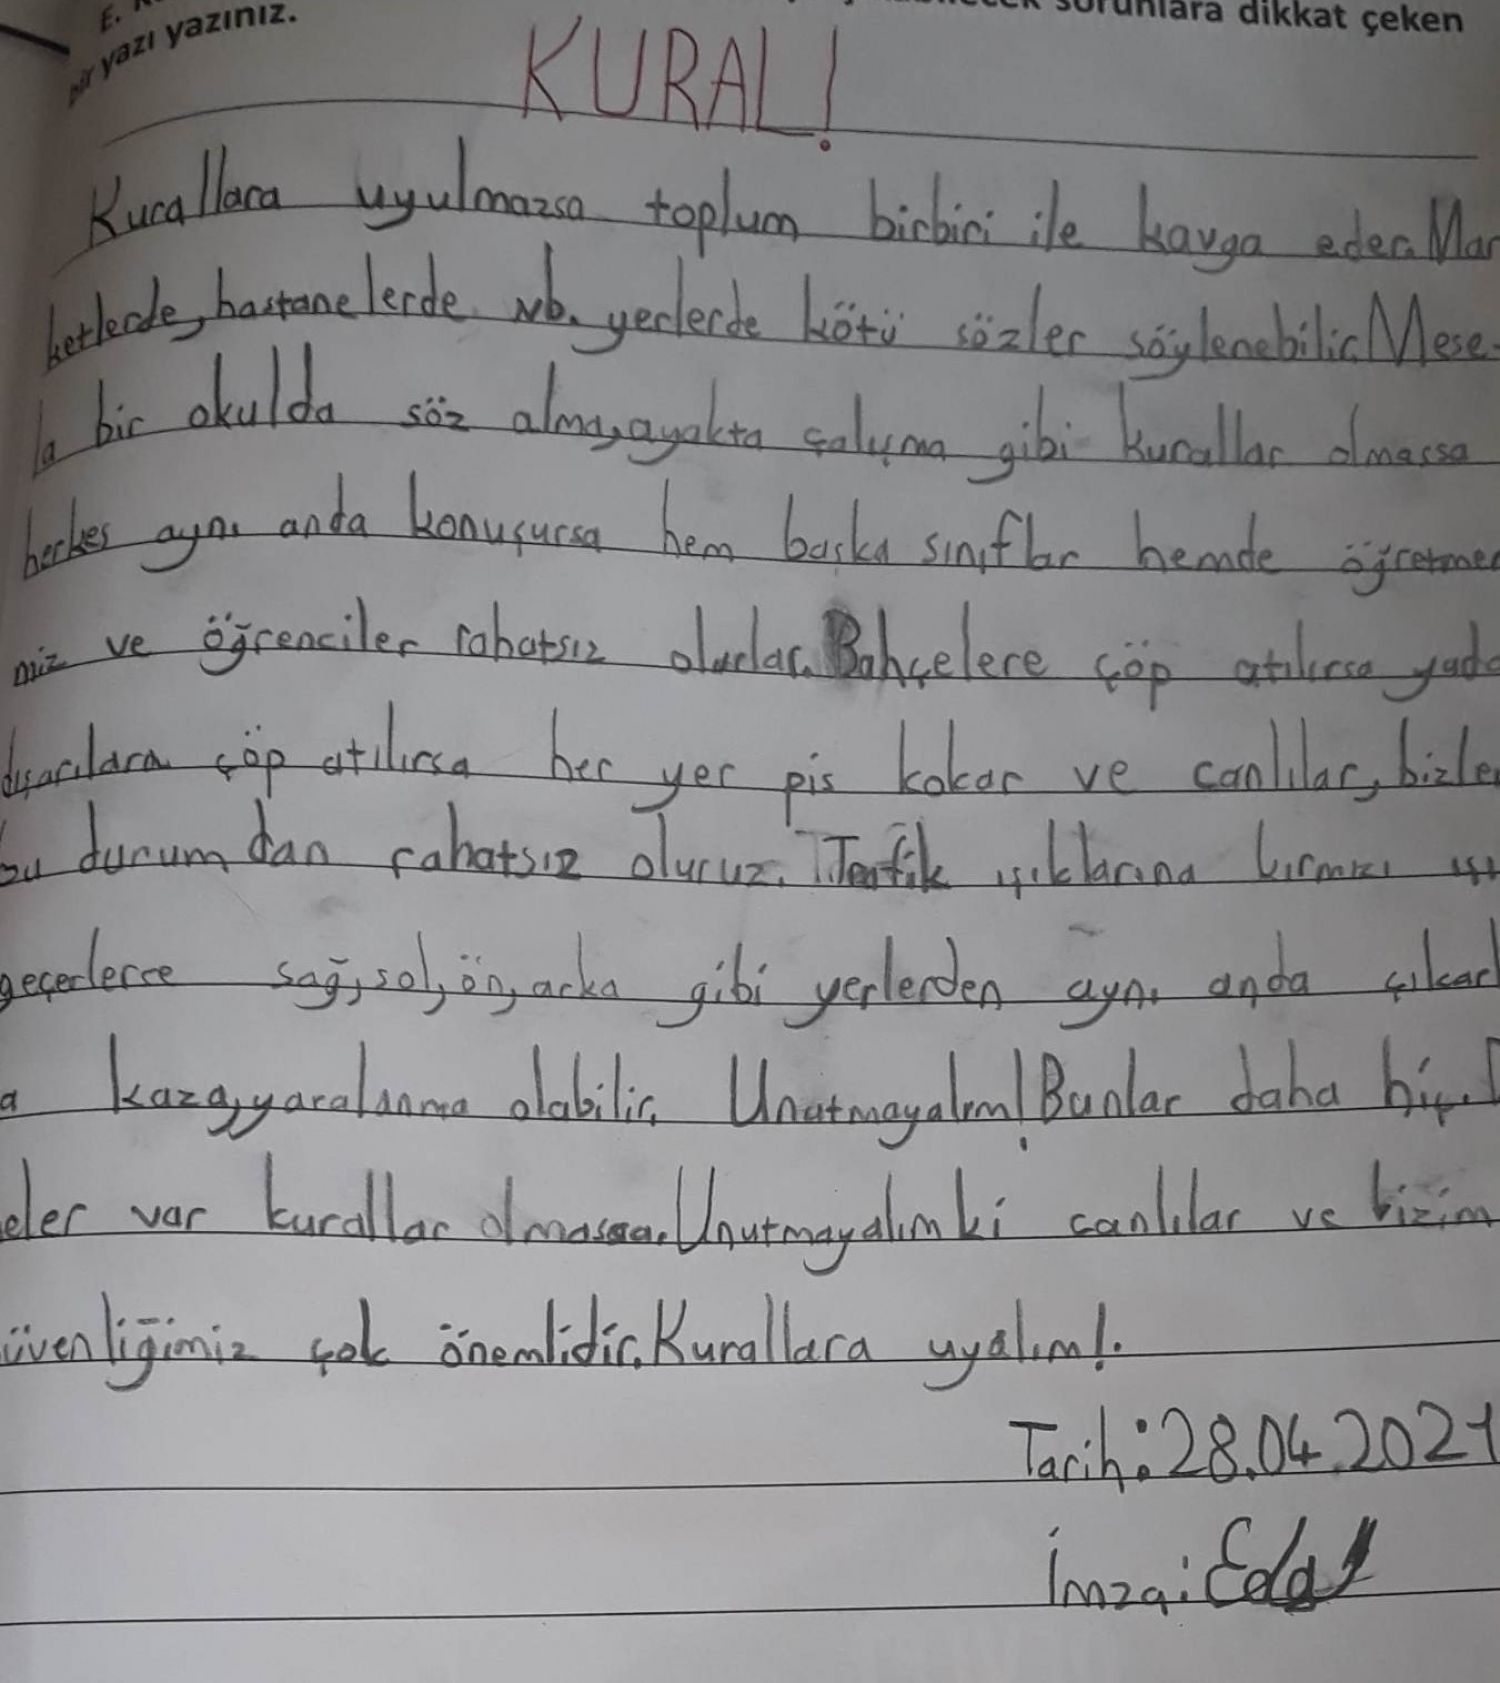 E.
sorunlara dikkat çeken
bir yazı yazınız.
KURAL!
Kurallara uyulmazsa toplum birbiri ile kavga eder. Mar
ketlerde, hastanelerde vb. yerlerde kötü sözler söylenebilir. Mese-
la bir okulda söz alma, ayakta çalışma gibi kurallar olmassa
herkes aynı anda konuşursa hem başka sınıflar hemde öğretme
miz ve öğrenciler rahatsız olurlar. Bahçelere çöp atılırsa yada
dışarılara çöp atılırsa her yer pis kokar ve canlılar, bizler
bu durum dan rahatsız oluruz. Trafik ışıklarına kırmızı ışı
geçerlerse sağ, sol, ön, arka gibi yerlerden aynı anda çıkarl
a kaza, yaralanma olabilir. Unutmayalım! Bunlar daha hiç.
eler var kurallar olmassa. Unutmayalım ki canlılar ve bizim
üvenliğimiz çok önemlidir. Kurallara uyalım!.
Tarih: 28.04.2021
İmza: Eda